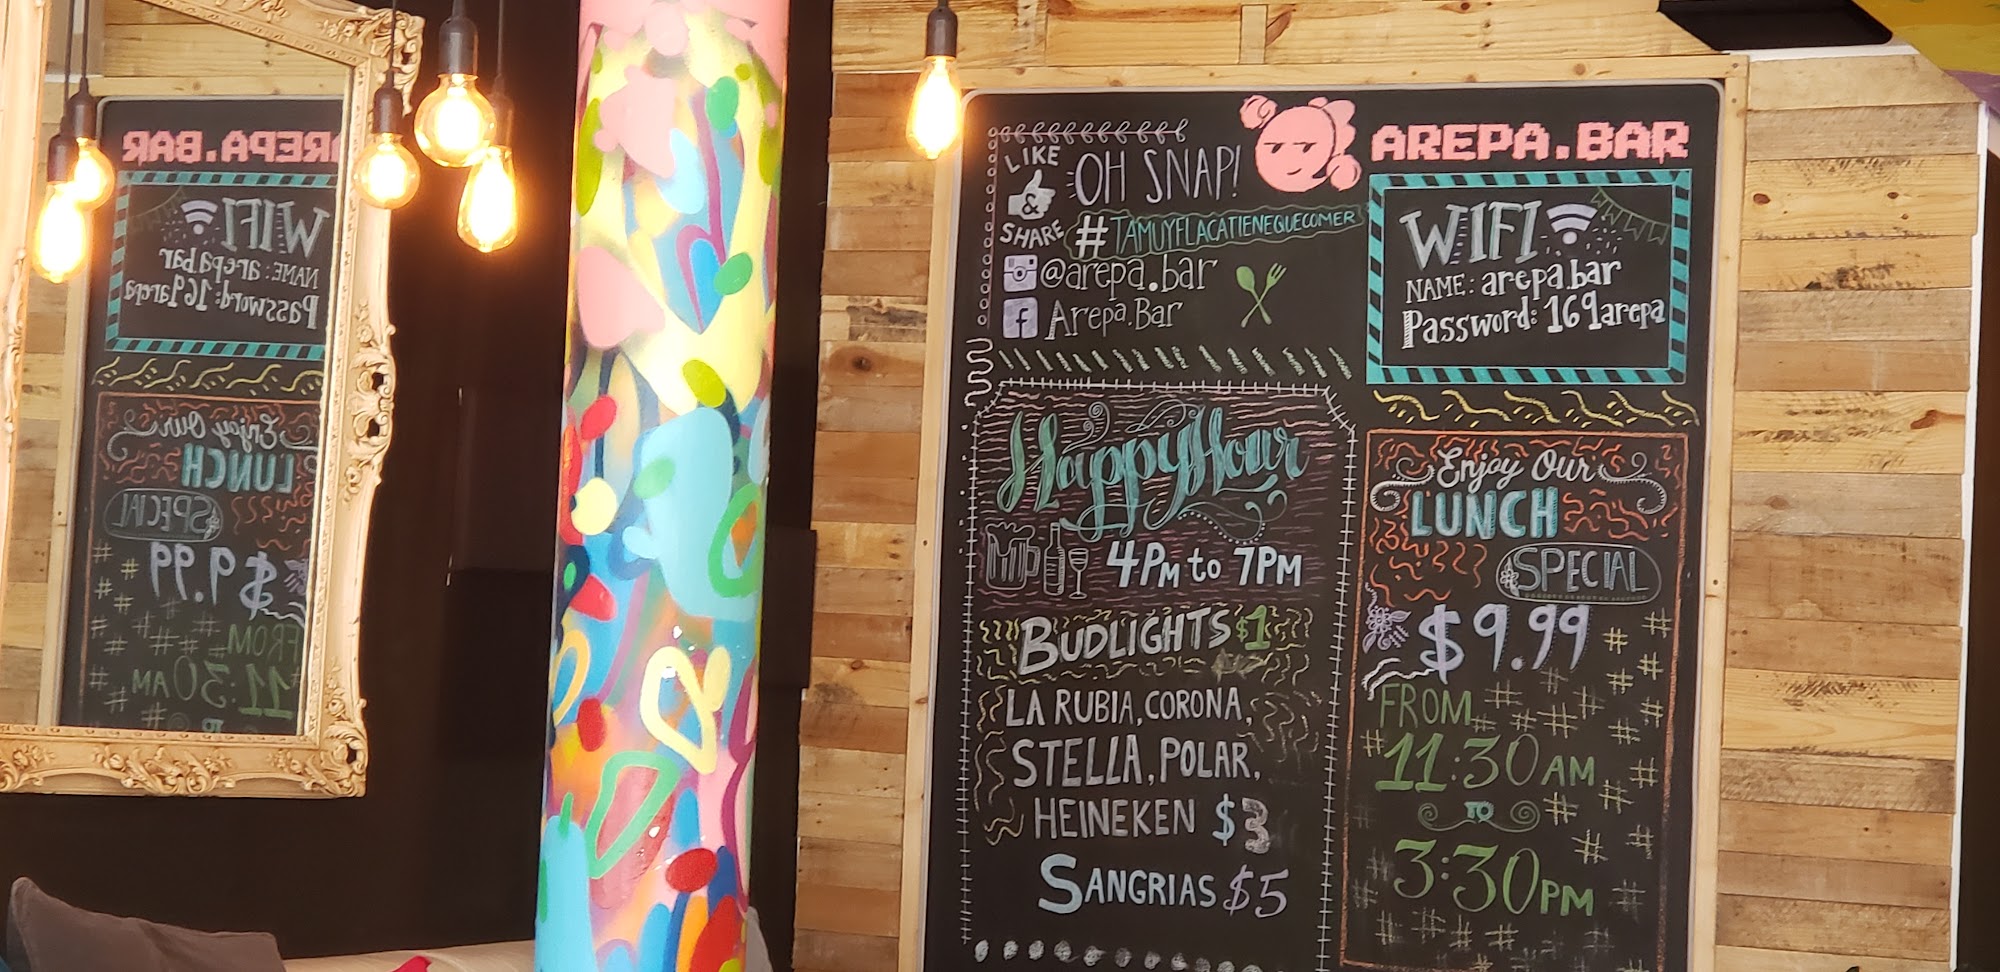 LIKE
&
SHARE
OH SNAP!
#TAMUYFLACATIENEQUECOMER
@arepa.bar
f Arepa.Bar
AREPA.BAR
WIFI
NAME: arepa.bar
Password: 169arepa
Happy Hour
4PM to 7PM
BUDLIGHTS $1
LA RUBIA, CORONA,
STELLA, POLAR,
HEINEKEN $3
SANGRIAS $5
Enjoy Our
LUNCH
SPECIAL
$9.99
FROM
11:30 AM
TO
3:30PM
AREPA.BAR
WIFI
NAME: arepa.bar
Password: 169arepa
Enjoy Our
LUNCH
SPECIAL
$9.99
FROM
11:30 AM
TO